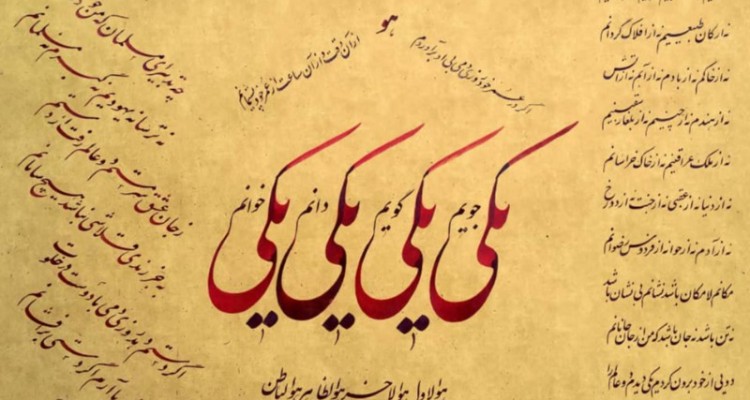 چه تدبیر ای مسلمانان که من خود
نه ترسا نه یهودم نه گبرم نه مسلمانم
نه ارکان طبیعیم نه از افلاک گردانم
نه از خاکم نه از بادم نه از آبم نه از آتش
نه از هندم نه از چینم نه از بلغار سقسینم
نه از ملک عراقینم نه از خاک خراسانم
نه از دنیا نه از عقبی نه از جنت نه از دوزخ
نه از آدم نه از حوا نه از فردوس رضوانم
مکانم لامکان باشد نشانم بی نشان باشد
نه تن باشد نه جان باشد که من از جان جانانم
دویی از خود برون کردم یکی دیدم دو عالم را
هو
یکی جویم یکی گویم یکی دانم یکی خوانم
هو الاول هو الاخر هو الظاهر هو الباطن
ز جام عشق سرمستم دو عالم رفت از دستم
به جز رندی و قلاشی نباشد هیچ سامانم
اگر در عمر خود روزی دمی بی او برآوردم
از آن وقت و از آن ساعت ز عمر خود پشیمانم
اگر دستم دهد روزی دمی با دوست در خلوت
پا آرم اگر دستی برافشانم